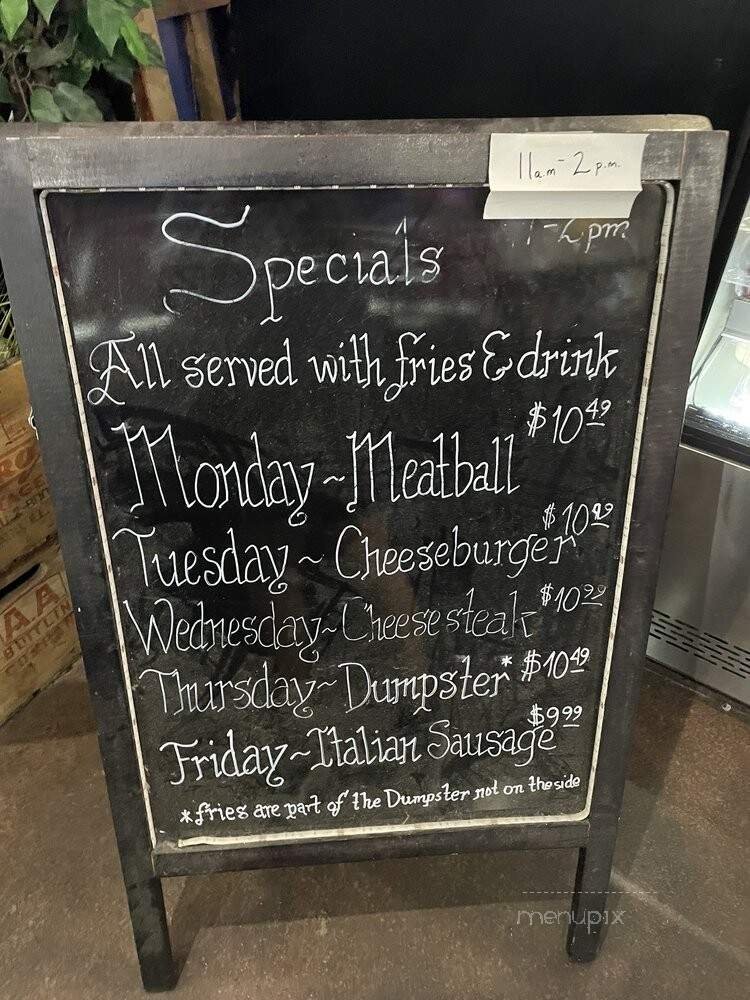 11a.m - 2 p.m.
-2pm
Specials
All served with fries & drink
$10 49
Monday ~ Meatball
$10
Tuesday ~ Cheeseburger
$10 99
Wednesday ~ Cheesesteak
Thursday ~ Dumpster* $10 49
$9 99
Friday ~ Italian Sausage
*fries are part of the Dumpster not on the side
menupix